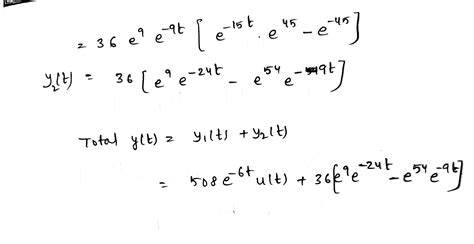 = 36 e^9 e^-9t [ e^-15t . e^45 - e^-45 ]
y2(t) = 36 [ e^9 e^-24t - e^54 e^-9t ]
Total y(t) = y1(t) + y2(t)
= 508 e^-6t u(t) + 36 [ e^9 e^-24t - e^54 e^-9t ]